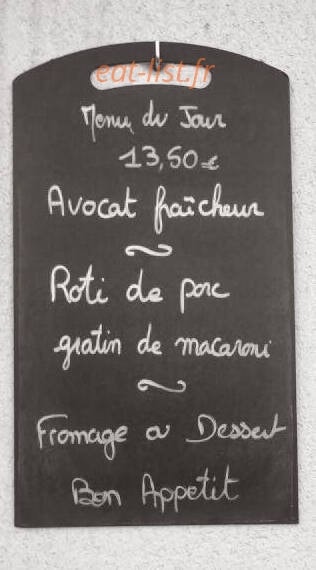 eat-list.fr
Menu du Jour
13,50€
Avocat fraîcheur
Roti de porc
gratin de macaroni
Fromage ou Dessert
Bon Appetit